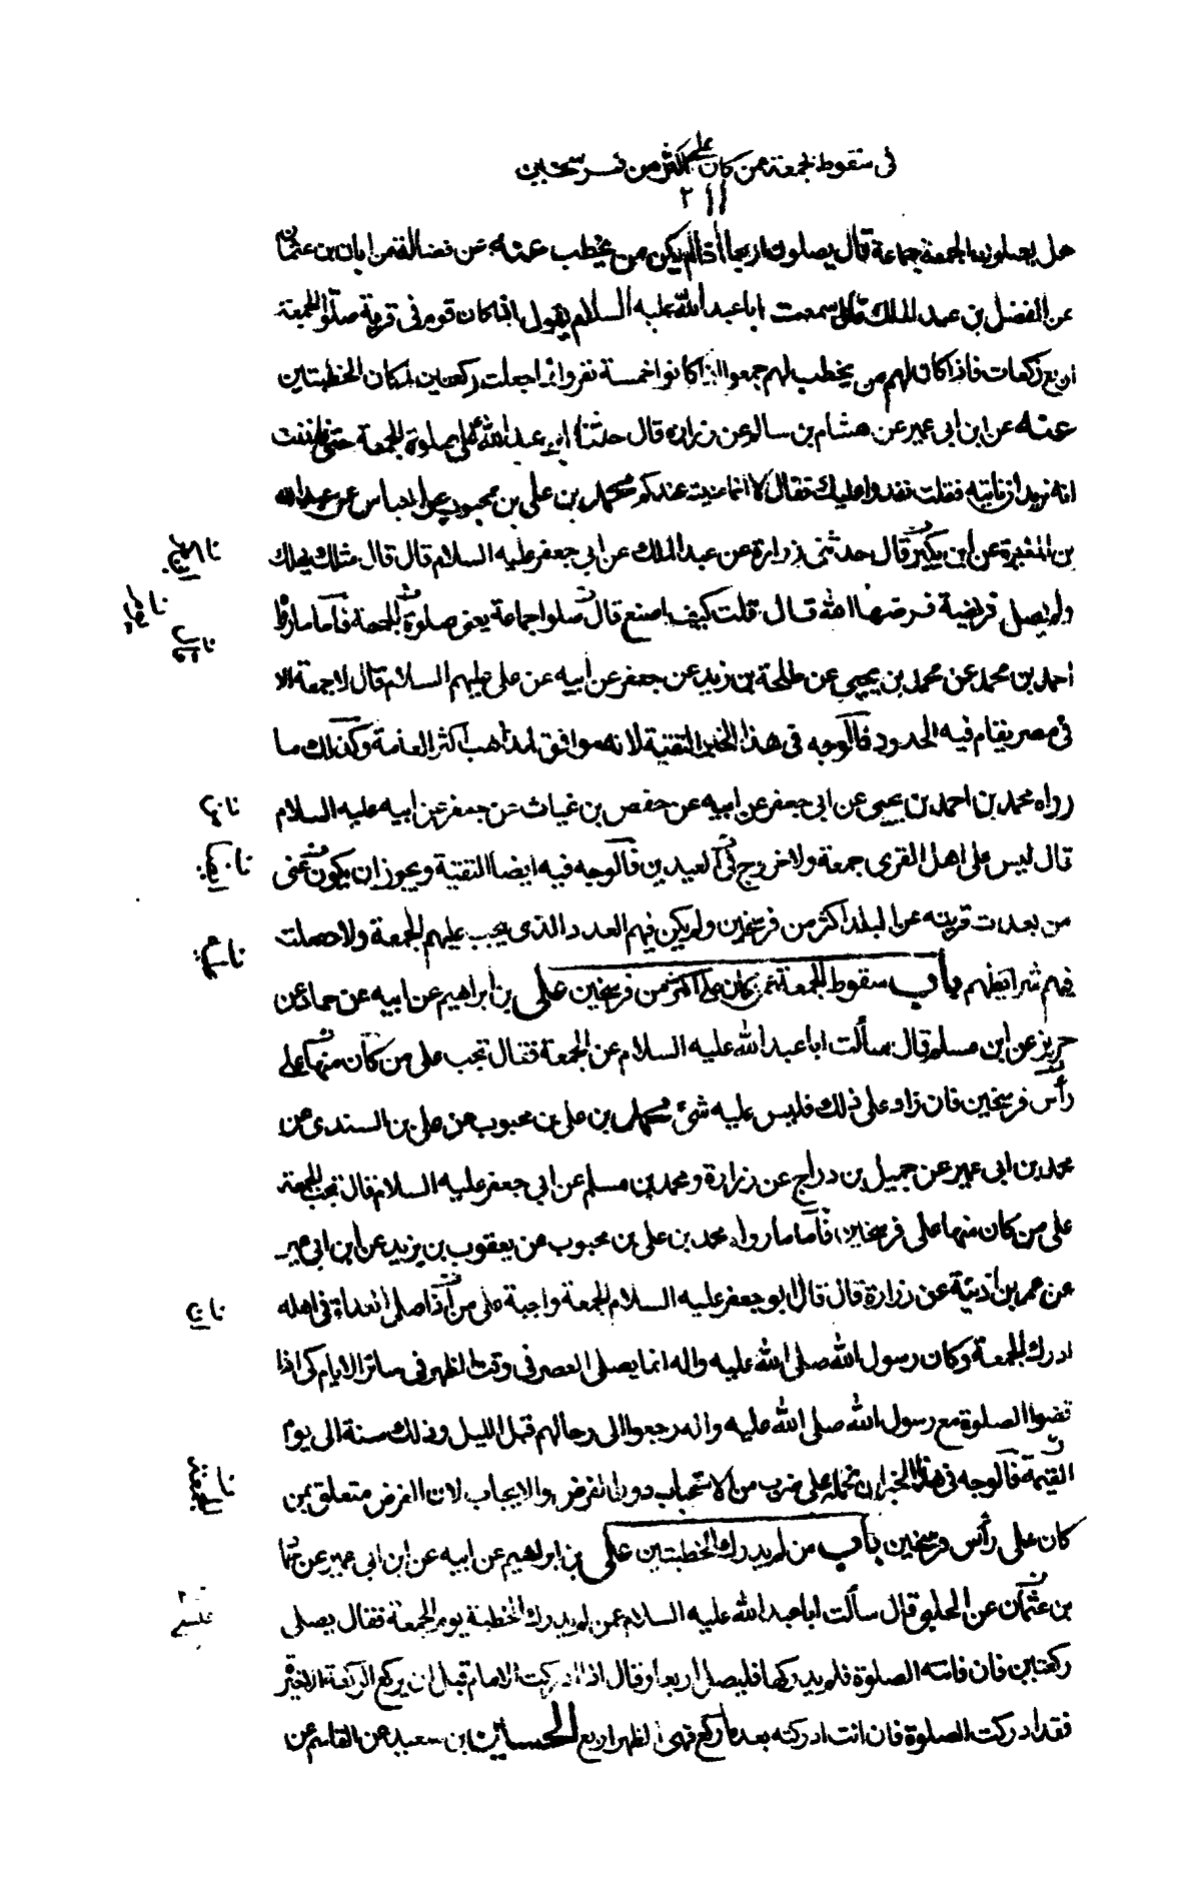 في سقوط الجمعة عمن كان على اكثر من فرسخين
٢١١
هل يصلون الجمعة جماعة قال يصلون اربعا اذا لم يكن من يخطب عنه عن فضالة عن ابان بن عثمان
عن الفضل بن عبد الملك قال سمعت ابا عبد الله عليه السلام يقول اذا كان قوم في قرية صلوا الجمعة
اربع ركعات فاذا كان لهم من يخطب لهم جمعوا اذا كانوا خمسة نفر وانما جعلت ركعتين لمكان الخطبتين
عنه عن ابن ابي عمير عن هشام بن سالم عن زرارة قال حثنا ابو عبد الله على صلوة الجمعة حتى ظننت
انه يريد ان ناتيه فقلت نغدوا عليك فقال لا انما عنيت عندكم محمد بن علي بن محبوب عن العباس عن عبد الله
بن المغيرة عن ابن بكير قال حدثني زرارة عن عبد الملك عن ابي جعفر عليه السلام قال قال مثلك يهلك
ولم يصل فريضة فرضها الله قال قلت كيف اصنع قال صلوا جماعة يعنى صلوة الجمعة فاما ما رواه
احمد بن محمد عن محمد بن يحيى عن طلحة بن زيد عن جعفر عن ابيه عن علي عليهم السلام قال لا جمعة الا
في مصر يقام فيه الحدود فالوجه في هذا الخبر التقية لانه موافق لمذاهب اكثر العامة وكذلك ما
رواه محمد بن احمد بن يحيى عن ابي جعفر عن ابيه عن حفص بن غياث عن جعفر عن ابيه عليه السلام
قال ليس على اهل القرى جمعة ولا خروج في العيدين فالوجه فيه ايضا التقية ويجوز ان يكون عنى
من بعدت قريته عن البلد اكثر من فرسخين ولم يكن فيهم العدد الذي يجب عليهم الجمعة ولا حصلت
فيهم شرائطهم باب سقوط الجمعة عمن كان على اكثر من فرسخين علي بن ابراهيم عن ابيه عن حماد عن
حريز عن ابن مسلم قال سألت ابا عبد الله عليه السلام عن الجمعة فقال تجب على من كان منها على
رأس فرسخين فان زاد على ذلك فليس عليه شئ محمد بن علي بن محبوب عن علي بن السندي عن
محمد بن ابي عمير عن جميل بن دراج عن زرارة ومحمد بن مسلم عن ابي جعفر عليه السلام قال تجب الجمعة
على من كان منها على فرسخين فاما ما رواه محمد بن علي بن محبوب عن يعقوب بن يزيد عن ابن ابي عمير
عن عمر بن اذينة عن زرارة قال قال ابو جعفر عليه السلام الجمعة واجبة على من اذا صلى الغداة في اهله
ادرك الجمعة وكان رسول الله صلى الله عليه واله انما يصلى العصر في وقت الظهر في سائر الايام كى اذا
قضوا الصلوة مع رسول الله صلى الله عليه واله رجعوا الى رحالهم قبل الليل وذلك سنة الى يوم
القيمة فالوجه في هذا الخبر ان نحمله على ضرب من الاستحباب دون الفرض والايجاب لان الفرض متعلق بمن
كان على رأس فرسخين باب من لم يدرك الخطبتين علي بن ابراهيم عن ابيه عن ابن ابي عمير عن حماد
بن عثمان عن الحلبي قال سألت ابا عبد الله عليه السلام عمن لم يدرك الخطبة يوم الجمعة فقال يصلى
ركعتين فان فاتته الصلوة فلم يدركها فليصل اربعا وقال اذا ادركت الامام قبل ان يركع الركعة الاخيرة
فقد ادركت الصلوة فان انت ادركته بعد ما ركع فهى الظهر اربع الحسين بن سعيد عن القاسم عن